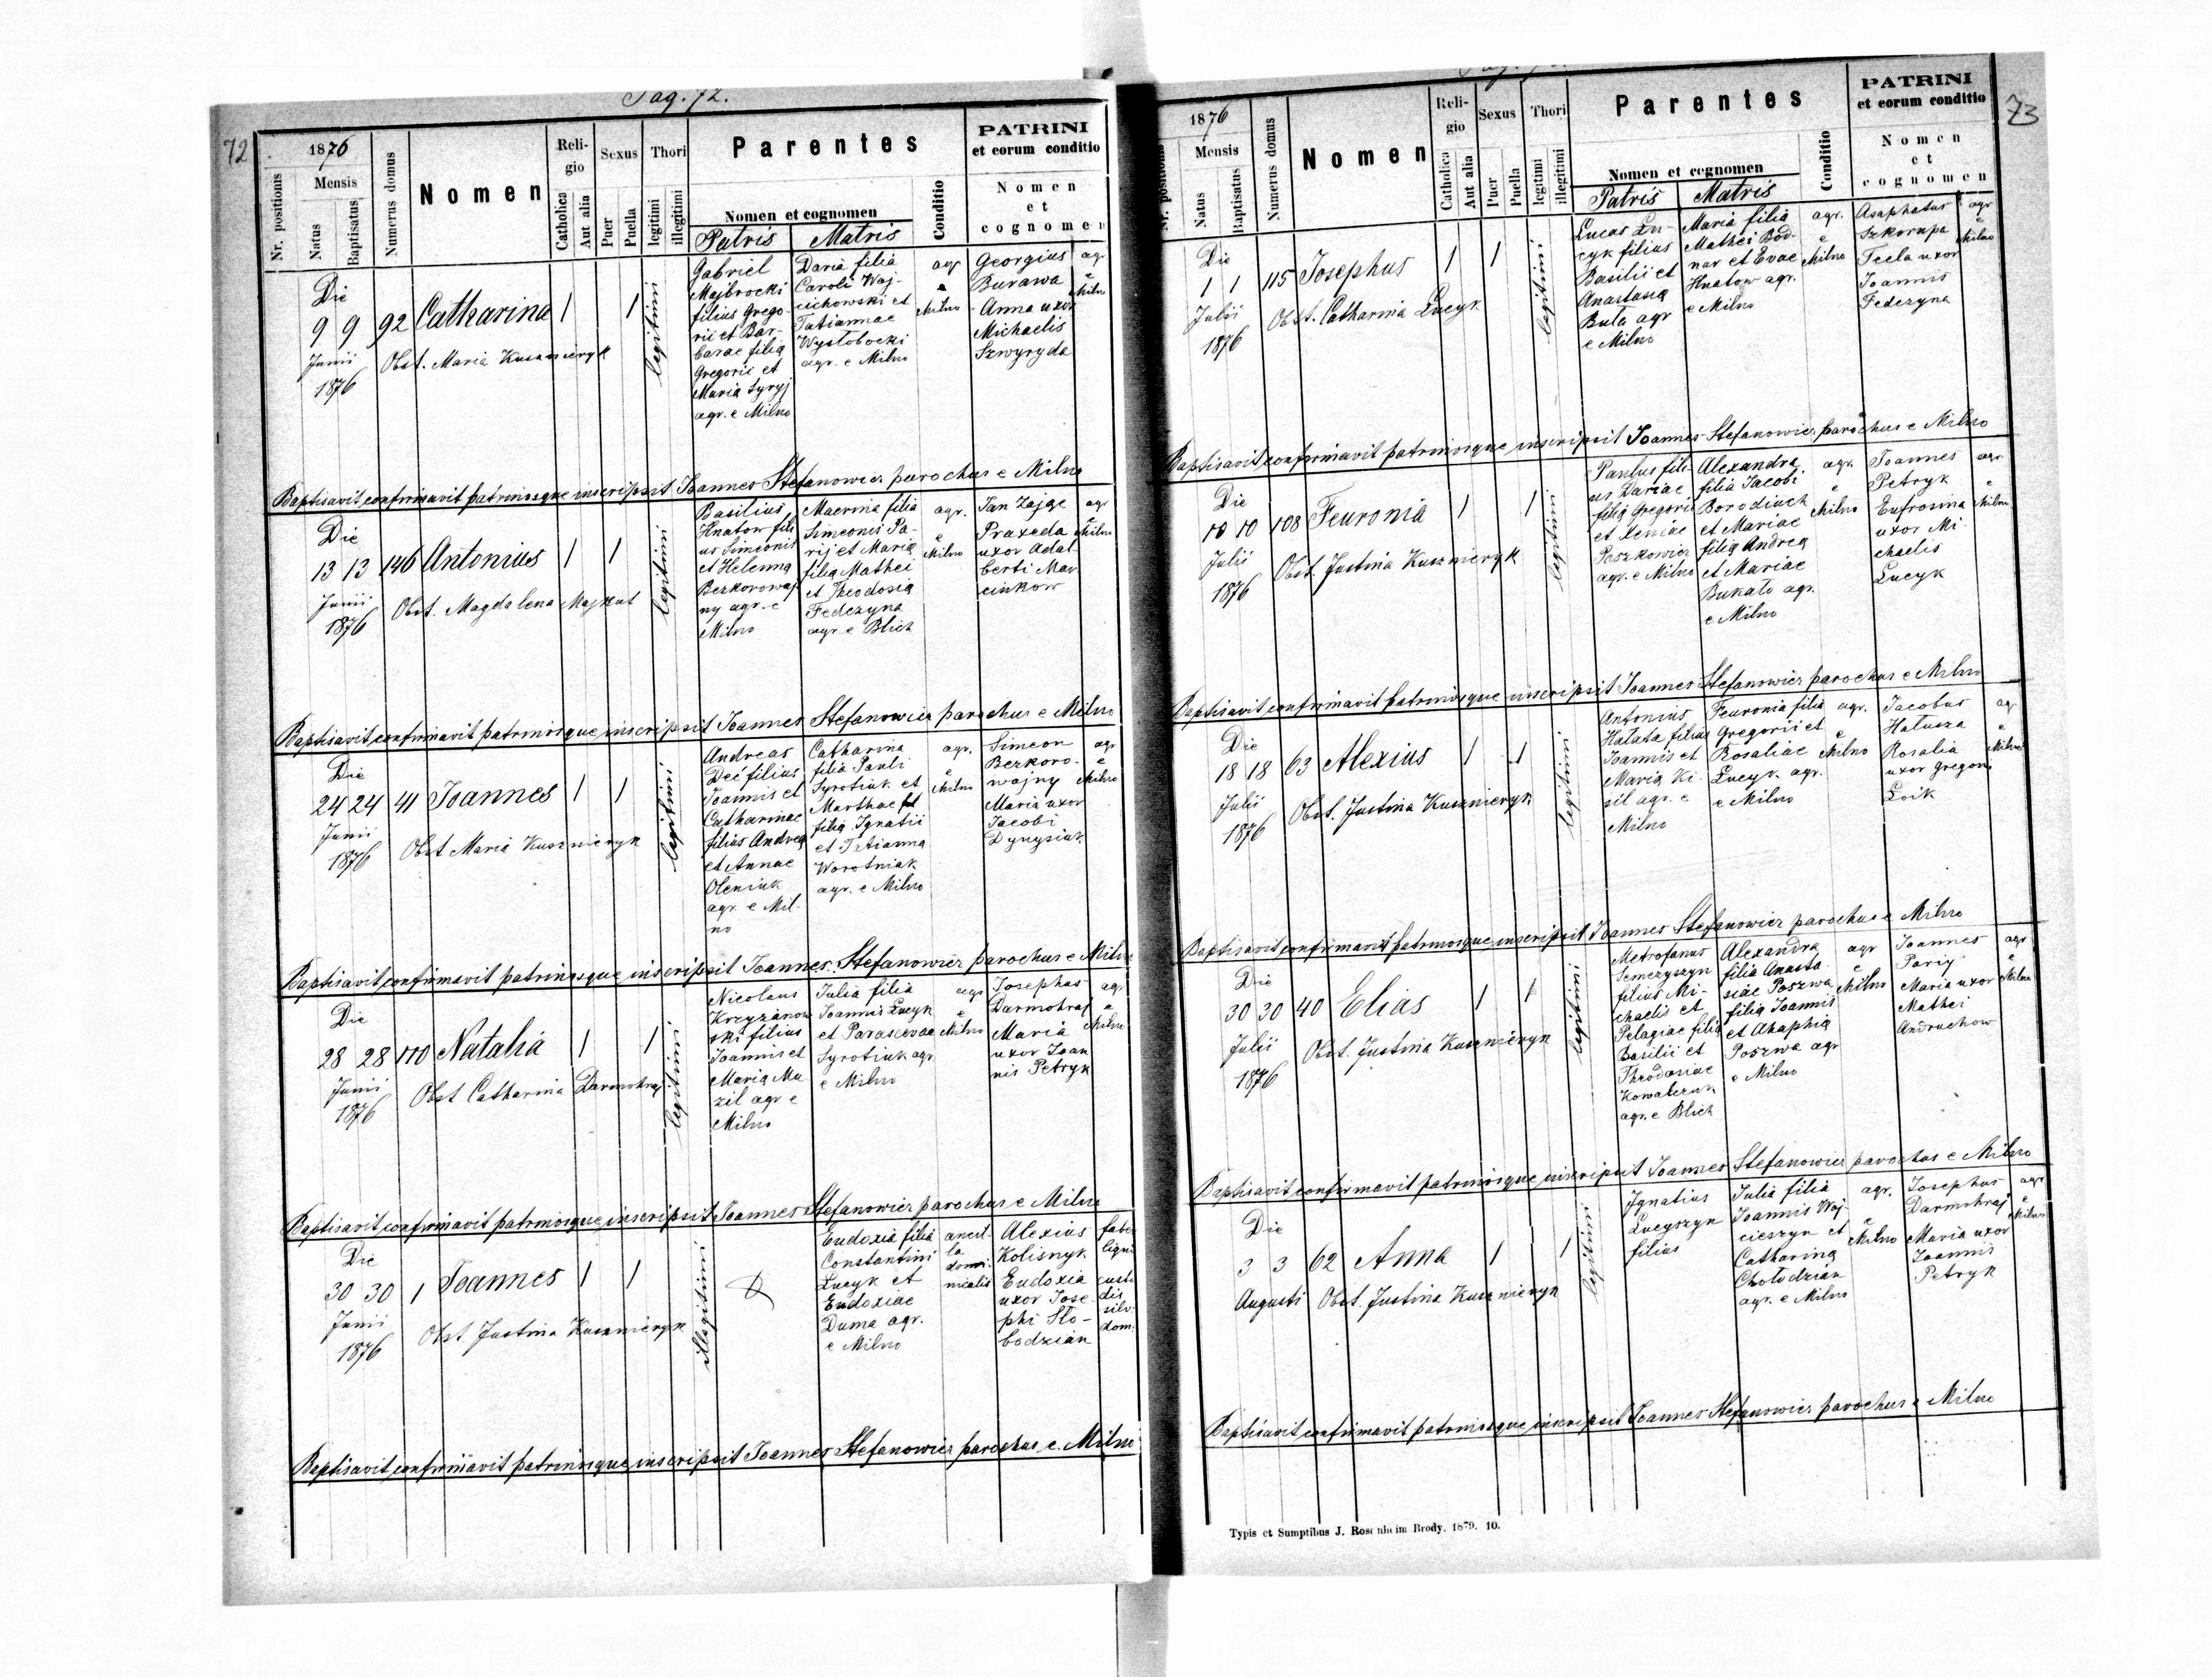 Pag. 72.
72
1876
Mensis
Nr. positionis
Natus
Baptisatus
Numerus domus
Nomen
Religio
Catholica
Aut alia
Sexus
Puer
Puella
Thori
legitimi
illegitimi
Parentes
Nomen et cognomen
Patris
Matris
Conditio
PATRINI
et eorum conditio
Nomen
et
cognomen
Die
9 9 92 Catharina 1 1
Junii
1876
Obst. Maria Kusznieryk
legitimi
Gabriel
Majbrocki
filius Grego-
rii et Bar-
barae filia
Gregorii et
Maria Syryj
agr. e Milno
Daria filia
Caroli Woj-
cichowski et
Tatiannae
Wystobocki
agr. e Milno
agr
e
Milno
Georgius
Burawa
Anna uxor
Michaelis
Szwyryda
agr
e
Milno
Baptisavit, confirmavit patrinosque inscripsit Joannes Stefanowicz parochus e Milno
Die
13 13 146 Antonius 1 1
Junii
1876
Obst. Magdalena Majkut
legitimi
Basilius
Hnatow fili
us Simeonis
et Helenna
Bezkorowaj
ny agr. e
Milno
Macrina filia
Simeonis Pa-
rij et Maria
filia Mathei
et Theodosia
Fedczyna
agr. e Blich
agr.
e
Milno
Jan Zając
Praxeda
uxor Adal
berti Mar
cinkow
agr
e
Milno
Baptisavit, confirmavit patrinosque inscripsit Joannes Stefanowicz parochus e Milno
Die
24 24 41 Joannes 1 1
Junii
1876
Obst Maria Kusznieryk
legitimi
Andreas
Deć filius
Joannis et
Catharinae
filius Andrea
et Annae
Oleniuk
agr. e Mil-
no
Catharina
filia Pauli
Syrotiuk et
Marthae
filia Ignatii
et Tatianna
Worotniak
agr. e Milno
agr.
e
Milno
Simeon
Bezkoro-
wajny
Maria uxor
Jacobi
Dynysiuk
agr
e
Milno
Baptisavit, confirmavit patrinosque inscripsit Joannes Stefanowicz parochus e Milno
Die
28 28 170 Natalia 1 1
Junii
1876
Obst Catharina Darmohraj
legitimi
Nicolaus
Krzyżanow
ski filius
Joannis et
Maria Mu
zil agr e
Milno
Julia filia
Joannis Łucyk
et Parascevae
Syrotiuk agr.
e Milno
agr
e
Milno
Josephus
Darmohraj
Maria
uxor Joan
nis Petryk
agr
e
Milno
Baptisavit, confirmavit patrinosque inscripsit Joannes Stefanowicz parochus e Milno
Die
30 30 1 Joannes 1 1
Junii
1876
Obst Justina Kusznieryk
illegitimi
Eudoxia filia
Constantini
Łucyk et
Eudoxiae
Duma agr.
e Milno
ancil-
la
domi-
nicalis
Alexius
Kolisnyk
Eudoxia
uxor Jose-
phi Sło-
bodzian
faber
ligni
custo
dis
silv.
dom.
Baptisavit, confirmavit patrinosque inscripsit Joannes Stefanowicz parochus e. Milno
73
1876
Mensis
Nr. positionis
Natus
Baptisatus
Numerus domus
Nomen
Religio
Catholica
Aut alia
Sexus
Puer
Puella
Thori
legitimi
illegitimi
Parentes
Nomen et cognomen
Patris
Matris
Conditio
PATRINI
et eorum conditio
Nomen
et
cognomen
Die
1 1 115 Josephus 1 1
Julii
1876
Obst. Catharina Łucyk
legitimi
Lucas Łu-
cyk filius
Basilii et
Anastasia
Buta agr
e Milno
Maria filia
Mathei Bod-
nar et Evae
Hnatow agr.
e Milno
agr.
e
Milno
Asaphatus
Szkorupa
Tecla uxor
Joannis
Fedczyna
agr
e
Milno
Baptisavit, confirmavit patrinosque inscripsit Joannes Stefanowicz parochus e Milno
Die
10 10 108 Feuronia 1 1
Julii
1876
Obst. Justina Kusznieryk
legitimi
Paulus fili-
us Dariae
filia Gregorii
et Xeniae
Peszkowicz
agr. e Milno
Alexandra
filia Jacobi
Borodiuch
et Mariae
filia Andrea
et Mariae
Bukało agr.
e Milno
agr.
e
Milno
Joannes
Petryk
Eufrosina
uxor Mi-
chaelis
Łucyk
agr
e
Milno
Baptisavit confirmavit patrinosque inscripsit Joannes Stefanowicz parochus e Milno
Die
18 18 63 Alexius 1 1
Julii
1876
Obst. Justina Kusznieryk
legitimi
Antonius
Hałata filius
Joannis et
Maria Ki-
sil agr. e
Milno
Feuronia filia
Gregorii et
Rosaliae
Łucyk agr.
e Milno
agr.
e
Milno
Jacobus
Hałusza
Rosalia
uxor Gregorii
Łoik
agr
e
Milno
Baptisavit confirmavit patrinosque inscripsit Joannes Stefanowicz parochus e Milno
Die
30 30 40 Elias 1 1
Julii
1876
Obst. Justina Kusznieryk
legitimi
Metrofanus
Semczyszyn
filius Mi-
chaelis et
Pelagiae filia
Basilii et
Theodosiae
Kowalczuk
agr. e Blich
Alexandra
filia Anasta-
siae Poszwa
filia Joannis
et Ahaphia
Poszwa agr
e Milno
agr
e
Milno
Joannes
Pariy
Maria uxor
Mathei
Andruchow
agr
e
Milno
Baptisavit confirmavit patrinosque inscripsit Joannes Stefanowicz parochus e Milno
Die
3 3 62 Anna 1 1
Augusti
Obst. Justina Kusznieryk
legitimi
Ignatius
Łucyszyn
filius
Julia filia
Joannis Woj-
cieszyn et
Catharina
Chołodzian
agr. e Milno
agr.
e
Milno
Josephus
Darmohraj
Maria uxor
Joannis
Petryk
agr
e
Milno
Baptisavit confirmavit patrinosque inscripsit Joannes Stefanowicz parochus e Milno
Typis et Sumptibus J. Rosenheim Brody. 1879. 10.